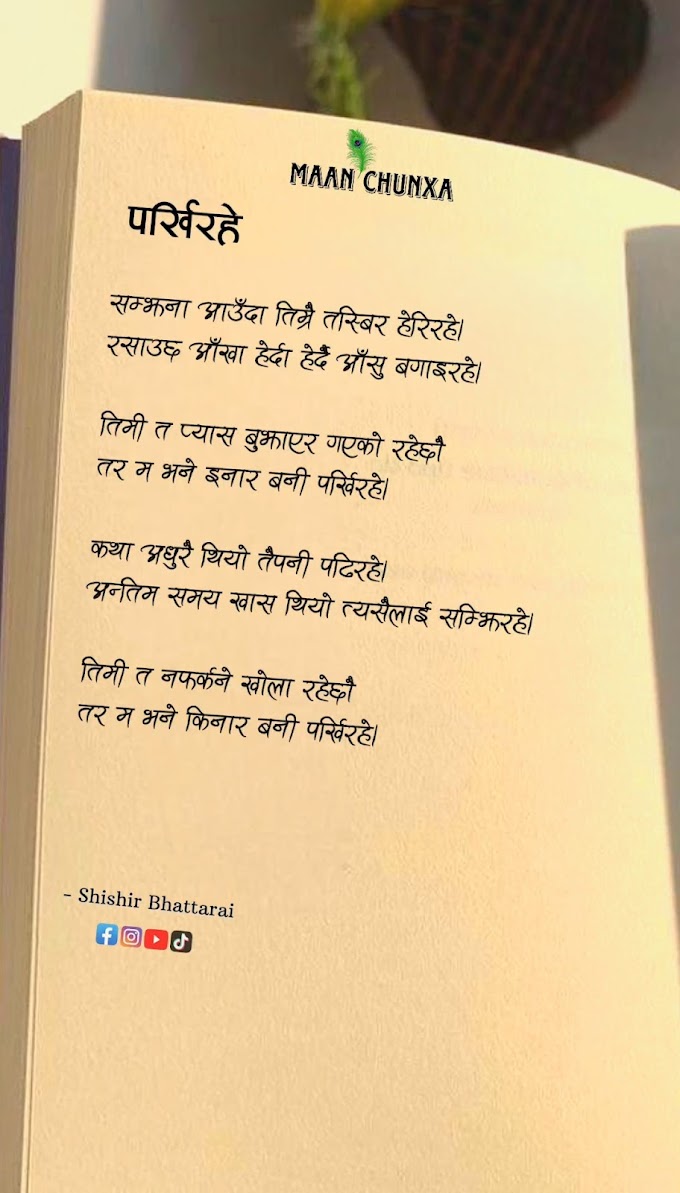 MAAN CHUNXA
पर्खिरहे
सम्झना आउँदा तिम्रै तस्बिर हेरिरहे।
रसाउछ आँखा हेर्दा हेर्दै आँसु बगाइरहे।
तिमी त प्यास बुझाएर गएको रहेछौ
तर म भने इनार बनी पर्खिरहे।
कथा अधुरै थियो तैपनी पढिरहे।
अन्तिम समय खास थियो त्यसैलाई सम्झिरहे।
तिमी त नफर्कने खोला रहेछौ
तर म भने किनार बनी पर्खिरहे।
- Shishir Bhattarai